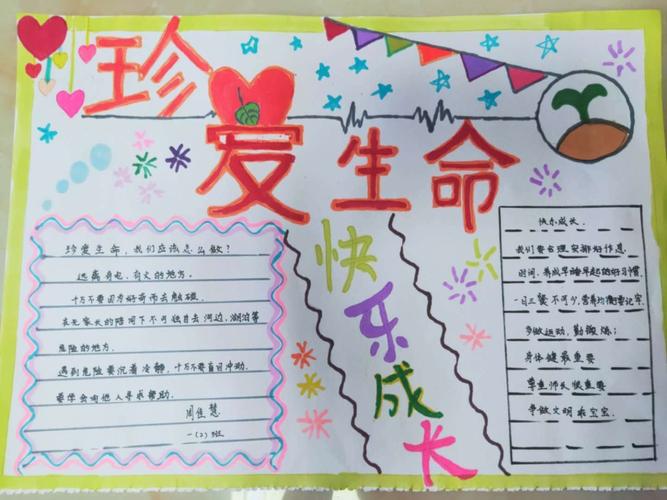 珍
爱生命
快
乐
成
长
珍爱生命，我们应该怎么做？
远离有电、有火的地方，
千万不要因为好奇而去触碰。
在无家长的陪同下不可独自去河边，湖泊等
危险的地方。
遇到危险要沉着冷静，千万不要盲目冲动。
要学会向他人寻求帮助。
周佳慧
一（2）班
快乐成长。
我们要合理安排好作息
时间，养成早睡早起的好习惯，
一日三餐不可少，营养均衡要记牢
多做运动，勤锻炼；
身体健康最重要
尊重师长很重要
争做文明乖宝宝。